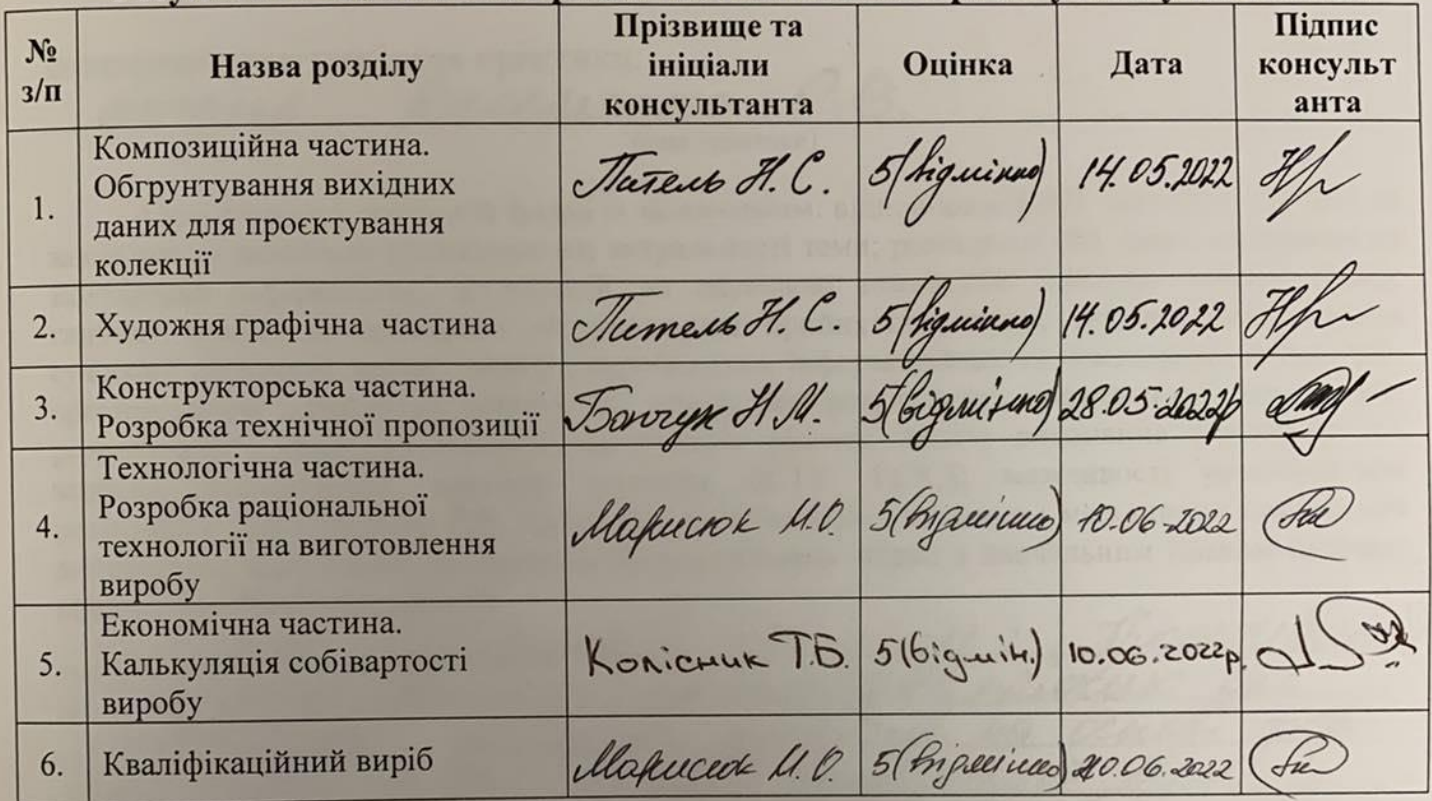 №
з/п
Назва розділу
Прізвище та
ініціали
консультанта
Оцінка
Дата
Підпис
консульт
анта
1.
Композиційна частина.
Обгрунтування вихідних
даних для проєктування
колекції
Питель Н. С. 5(відмінно) 14.05.2022
2. Художня графічна частина Питель Н. С. 5(відмінно) 14.05.2022
3.
Конструкторська частина.
Розробка технічної пропозиції
Н.М. 5(відмінно) 28.05.2022р
4.
Технологічна частина.
Розробка раціональної
технології на виготовлення
виробу
Марисюк М.О. 5(відмінно) 10.06.2022
5.
Економічна частина.
Калькуляція собівартості
виробу
Колісник Т.Б. 5(відмін.) 10.06.2022р.
6. Кваліфікаційний виріб Марисюк М.О. 5(відмінно) 10.06.2022